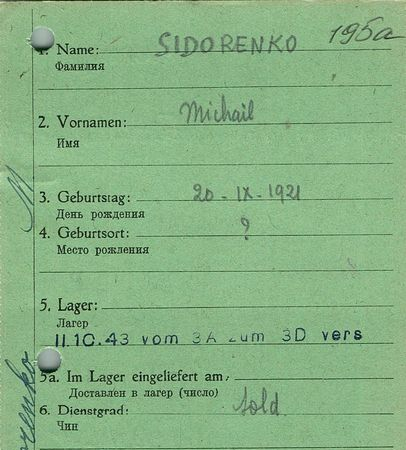 195a
1. Name: SIDORENKO
Фамилия
2. Vornamen: Michail
Имя
3. Geburtstag: 20-IX-1921
День рождения
4. Geburtsort: ?
Место рождения
5. Lager:
Лагер
11.10.43 vom 3A zum 3D vers
5a. Im Lager eingeliefert am:
Доставлен в лагер (число)
6. Dienstgrad: Sold
Чин